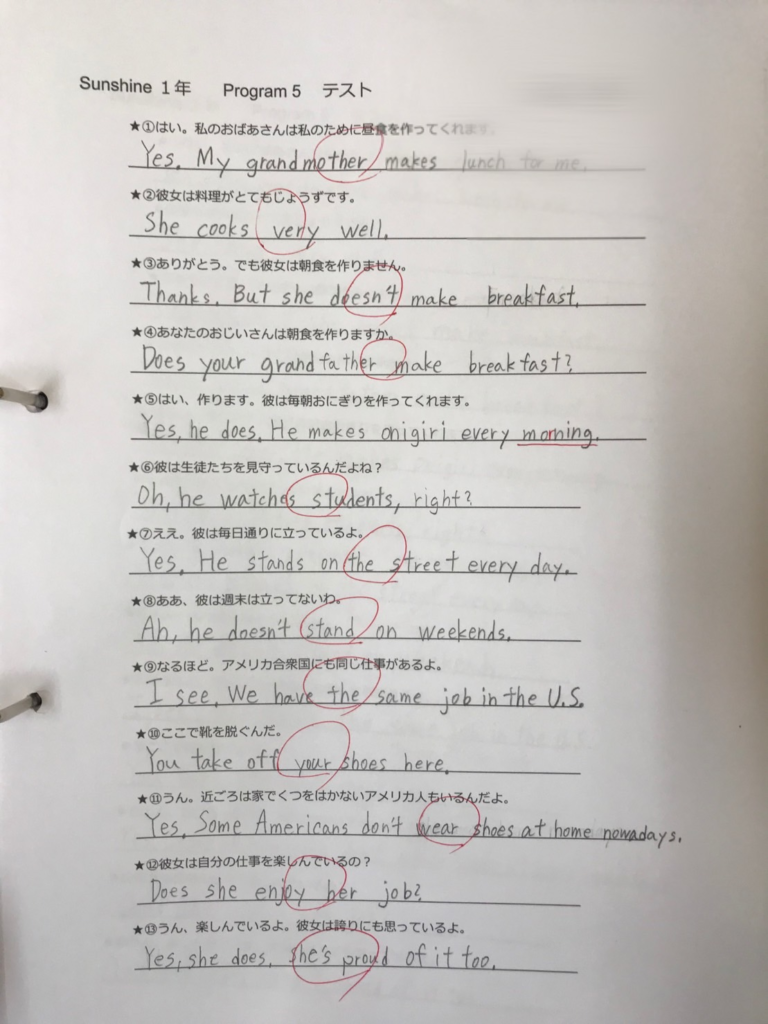 Sunshine 1年 Program 5 テスト
★①はい。私のおばあさんは私のために昼食を作ってくれます。
Yes. My grandmother makes lunch for me.
★②彼女は料理がとてもじょうずです。
She cooks very well.
★③ありがとう。でも彼女は朝食を作りません。
Thanks. But she doesn't make breakfast.
★④あなたのおじいさんは朝食を作りますか。
Does your grandfather make breakfast?
★⑤はい、作ります。彼は毎朝おにぎりを作ってくれます。
Yes, he does. He makes onigiri every morning.
★⑥彼は生徒たちを見守っているんだよね？
Oh, he watches students, right?
★⑦ええ。彼は毎日通りに立っているよ。
Yes. He stands on the street every day.
★⑧ああ、彼は週末は立ってないわ。
Ah, he doesn't stand on weekends.
★⑨なるほど。アメリカ合衆国にも同じ仕事があるよ。
I see. We have the same job in the U.S.
★⑩ここで靴を脱ぐんだ。
You take off your shoes here.
★⑪うん。近ごろは家でくつをはかないアメリカ人もいるんだよ。
Yes. Some Americans don't wear shoes at home nowadays.
★⑫彼女は自分の仕事を楽しんでいるの？
Does she enjoy her job?
★⑬うん、楽しんでいるよ。彼女は誇りにも思っているよ。
Yes, she does. She's proud of it too.